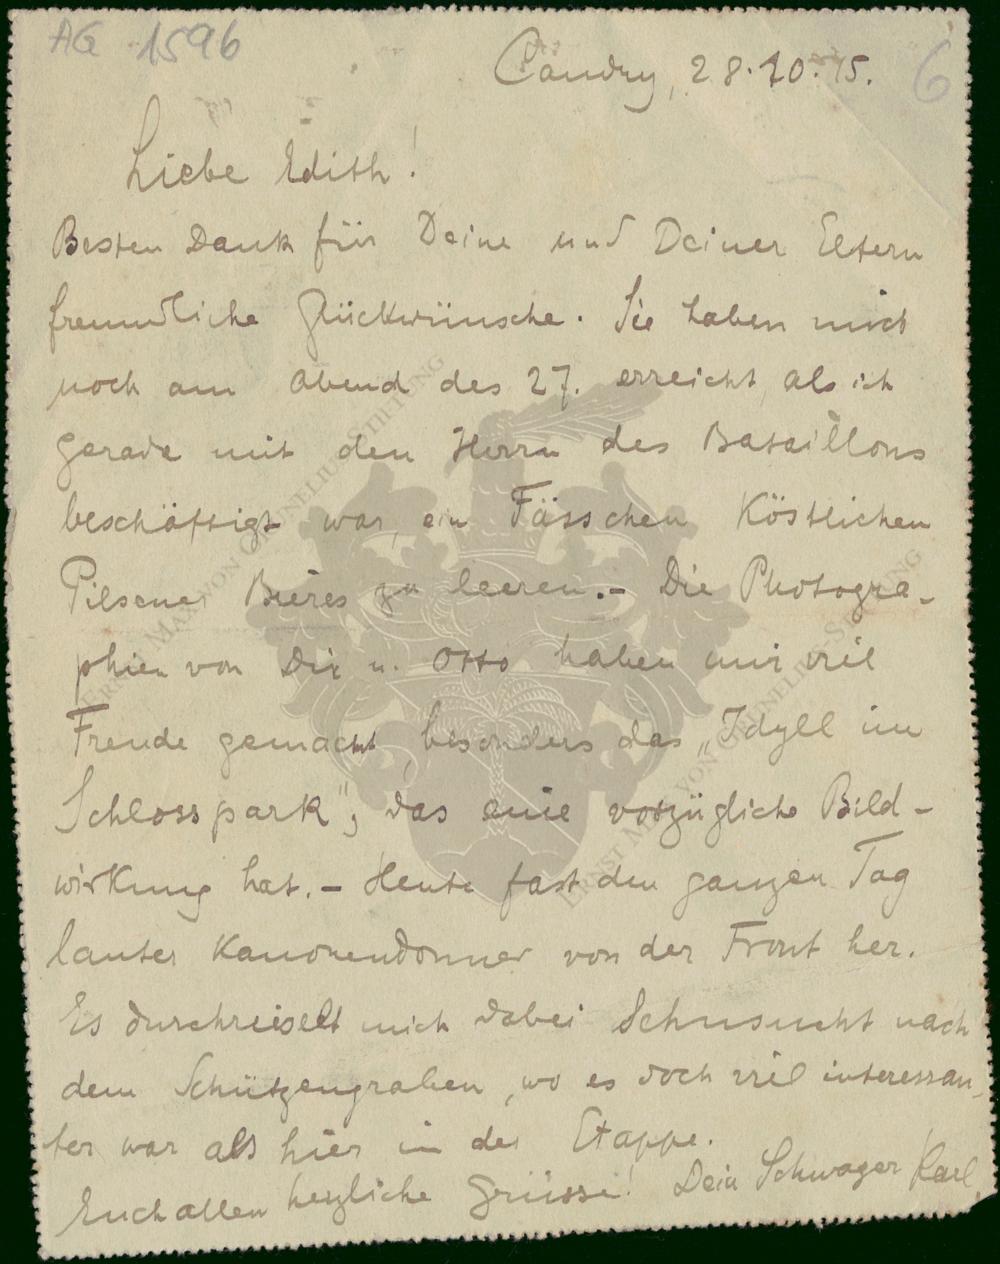 AG 1596
6
Caudry, 28.10.15.
Liebe Edith!
Besten Dank für Deine und Deiner Eltern
freundliche Glückwünsche. Sie haben mich
noch am Abend des 27. erreicht, als ich
gerade mit den Herrn des Bataillons
beschäftigt war, ein Fässchen Köstlichen
Pilsener Bieres zu leeren. – Die Photogra-
phien von Dir u. Otto haben mir viel
Freude gemacht, besonders das „Idyll im
Schlosspark", das eine vorzügliche Bild-
wirkung hat. – Heute fast den ganzen Tag
lauter Kanonendonner von der Front her.
Es durchrieselt mich dabei Sehnsucht nach
dem Schützengraben, wo es doch viel interessan-
ter war als hier in der Etappe.
Euch allen herzliche Grüsse! Dein Schwager Karl.
ERNST MAX VON GRUNELIUS-STIFTUNG
ERNST MAX VON GRUNELIUS-STIFTUNG